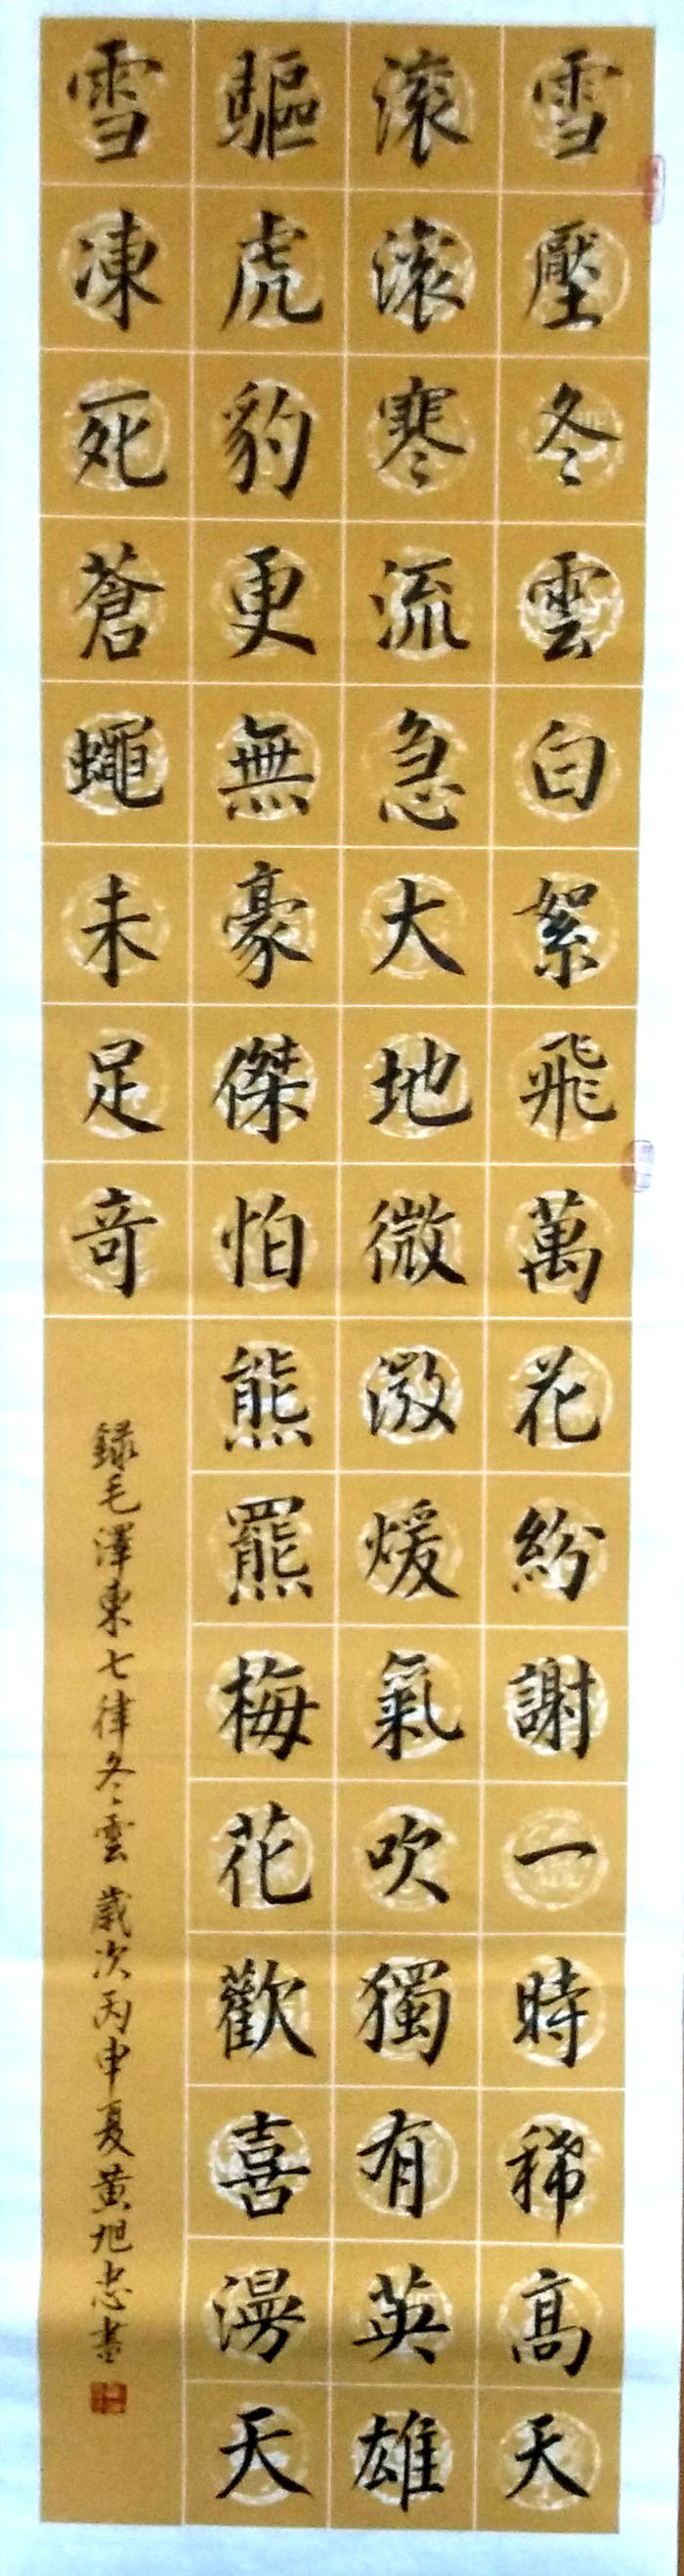 雪壓冬雲白絮飛萬花紛謝一時稀高天
滚滚寒流急大地微微煖氣吹獨有英雄
驅虎豹更無豪傑怕熊羆梅花歡喜漫天
雪凍死蒼蠅未足奇
録毛澤東七律冬雲 歲次丙申夏黄旭忠書